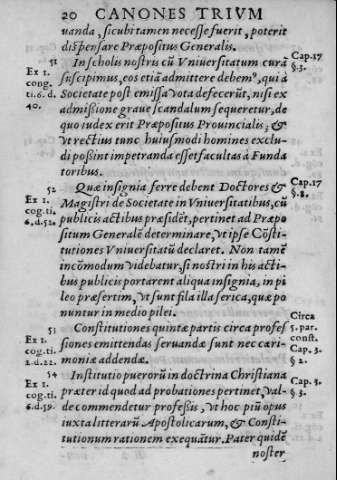 20 CANONES TRIVM
uanda, sicubi tamen necesse fuerit, poterit
dispensare Præpositus Generalis.
51
Ex 1.
cong.
ti. 6. d.
40.
In scholis nostris cũ Vniuersitatum curã
suscipimus, eos etiã admittere debemꝰ, qui à
Societate post emissa vota defecerũt, nisi ex
admissione graue scandalum sequeretur, de
quo iudex erit Præpositus Prouincialis; &
vt rectius tunc huiusmodi homines exclu-
di possint impetranda esset facultas à Funda
toribus.
Cap. 17
§. 3.
52
Ex 1.
cog. ti.
6. d. 52.
Quæ insignia ferre debent Doctores &
Magistri de Societate in Vniuersitatibus, cũ
publicis actibus præsidẽt, pertinet ad Præpo
situm Generalẽ determinare, vt ipse Cõsti-
tutiones Vniuersitatũ declaret. Non tamẽ
incõmodum videbatur, si nostri in his acti-
bus publicis portarent aliqua insignia, in pi
leo præsertim, vt sunt fila illa serica, quæ po
nuntur in medio pilei.
Cap. 17
§. 8.
53
Ex 1.
cog. ti.
2. d. 22.
Constitutiones quintæ partis circa profes
siones emittendas seruandæ sunt nec cæri-
moniæ addendæ.
Circa
5. par.
const.
Cap. 3.
§ 2.
54
Ex 1.
cog. ti.
6. d. 39.
Institutio puerorũ in doctrina Christiana
præter id quod ad probationes pertinet, val-
de commendetur professis, vt hoc piũ opus
iuxta litterarũ Apostolicarum, & Consti-
tutionum rationem exequãtur. Pater quidẽ
Cap. 3.
§ 3.
noster